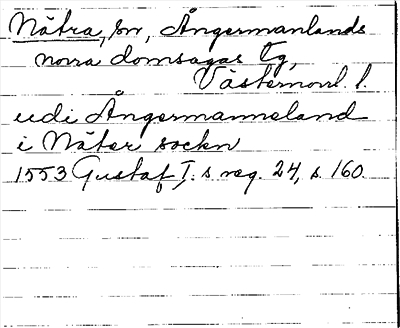 Nätra, sn, Ångermanlands
norra domsagas tg,
Västernorrl. l.
udi Ångermanneland
i Näter sockn
1553 Gustaf I:s reg. 24, s. 160.